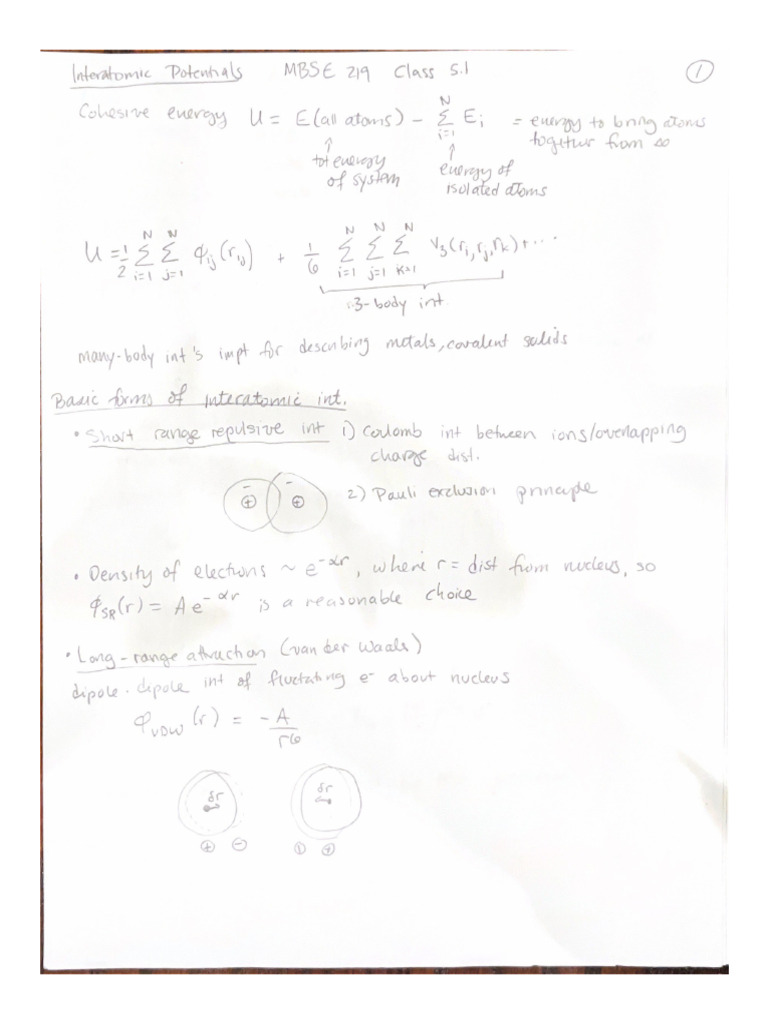 Interatomic Potentials MBSE 219 Class 5.1 ①
Cohesive energy U = E(all atoms) - Σ_{i=1}^{N} E_i = energy to bring atoms together from ∞
↑ tot energy of system
↑ energy of isolated atoms
U = 1/2 Σ_{i=1}^{N} Σ_{j=1}^{N} φ_{ij}(r_{ij}) + 1/6 Σ_{i=1}^{N} Σ_{j=1}^{N} Σ_{k=1}^{N} V_3(r_i, r_j, r_k) + ...
3-body int
many-body int's impt for describing metals, covalent solids
Basic forms of interatomic int.
• Short range repulsive int 1) Coulomb int between ions/overlapping
charge dist.
- -
⊕ ⊕
2) Pauli exclusion principle
• Density of electrons ~ e^{-αr}, where r = dist from nucleus, so
φ_{SR}(r) = A e^{-αr} is a reasonable choice
• Long-range attraction (van der Waals)
dipole-dipole int of fluctating e⁻ about nucleus
φ_{VDW}(r) = -A/r⁶
δr δr
⊕ ⊖